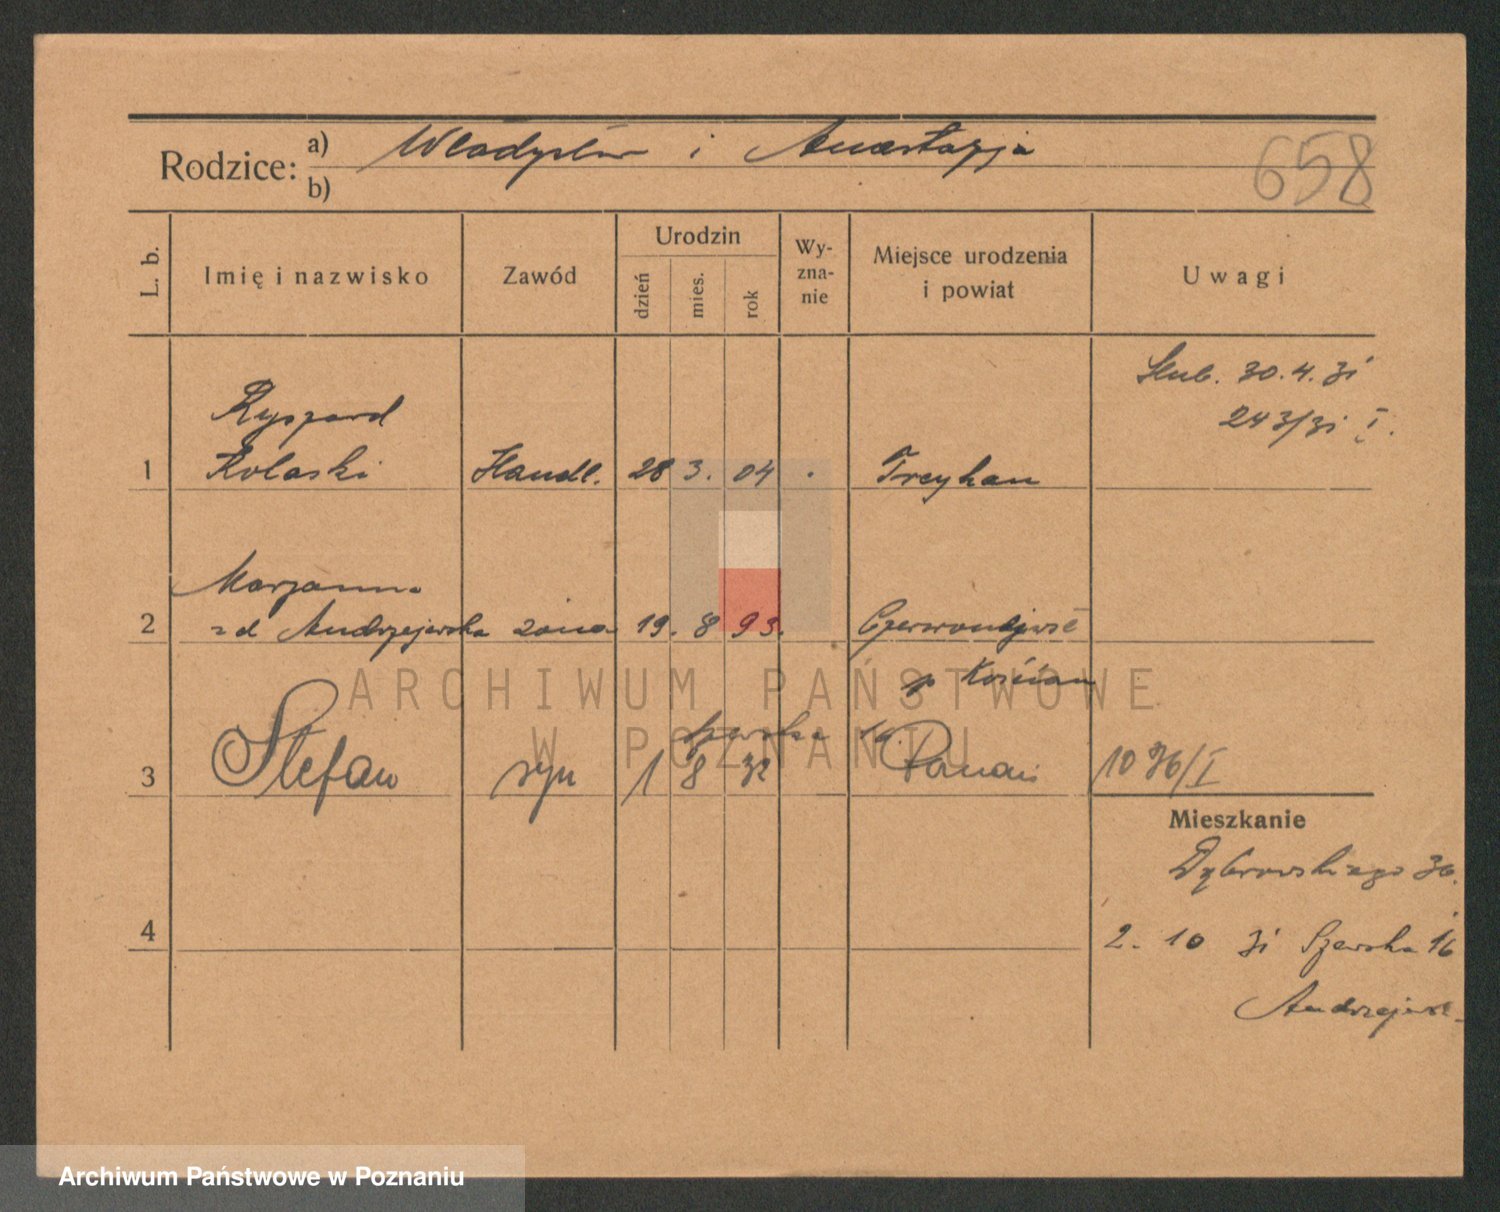 Rodzice: a) Władysław i Anastazja
b)
658
L. b.
Imię i nazwisko
Zawód
Urodzin
dzień
mies.
rok
Wy-
zna-
nie
Miejsce urodzenia
i powiat
Uwagi
Ślub. 30.4.31
243/31 I.
Ryszard
1 Kolaski Handl. 28 3. 04 Treyhan
Marjanna
2 zd Andrzejewska żona 19. 8 93.
p Kościan
ARCHIWUM PAŃSTWOWE
W POZNANIU
Szewska 16.
3 Stefan syn 1 8 32 Poznań 1036/I
Mieszkanie
Dąbrowskiego 36.
4
2. 10 31 Szewska 16
Archiwum Państwowe w Poznaniu